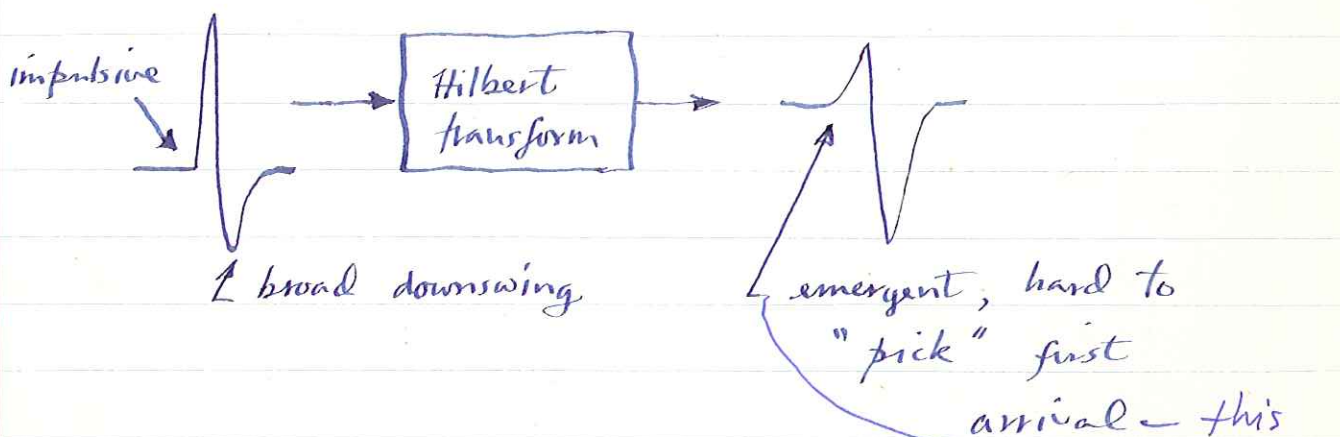 impulsive
Hilbert
transform
broad downswing
emergent, hard to
"pick" first
arrival – this